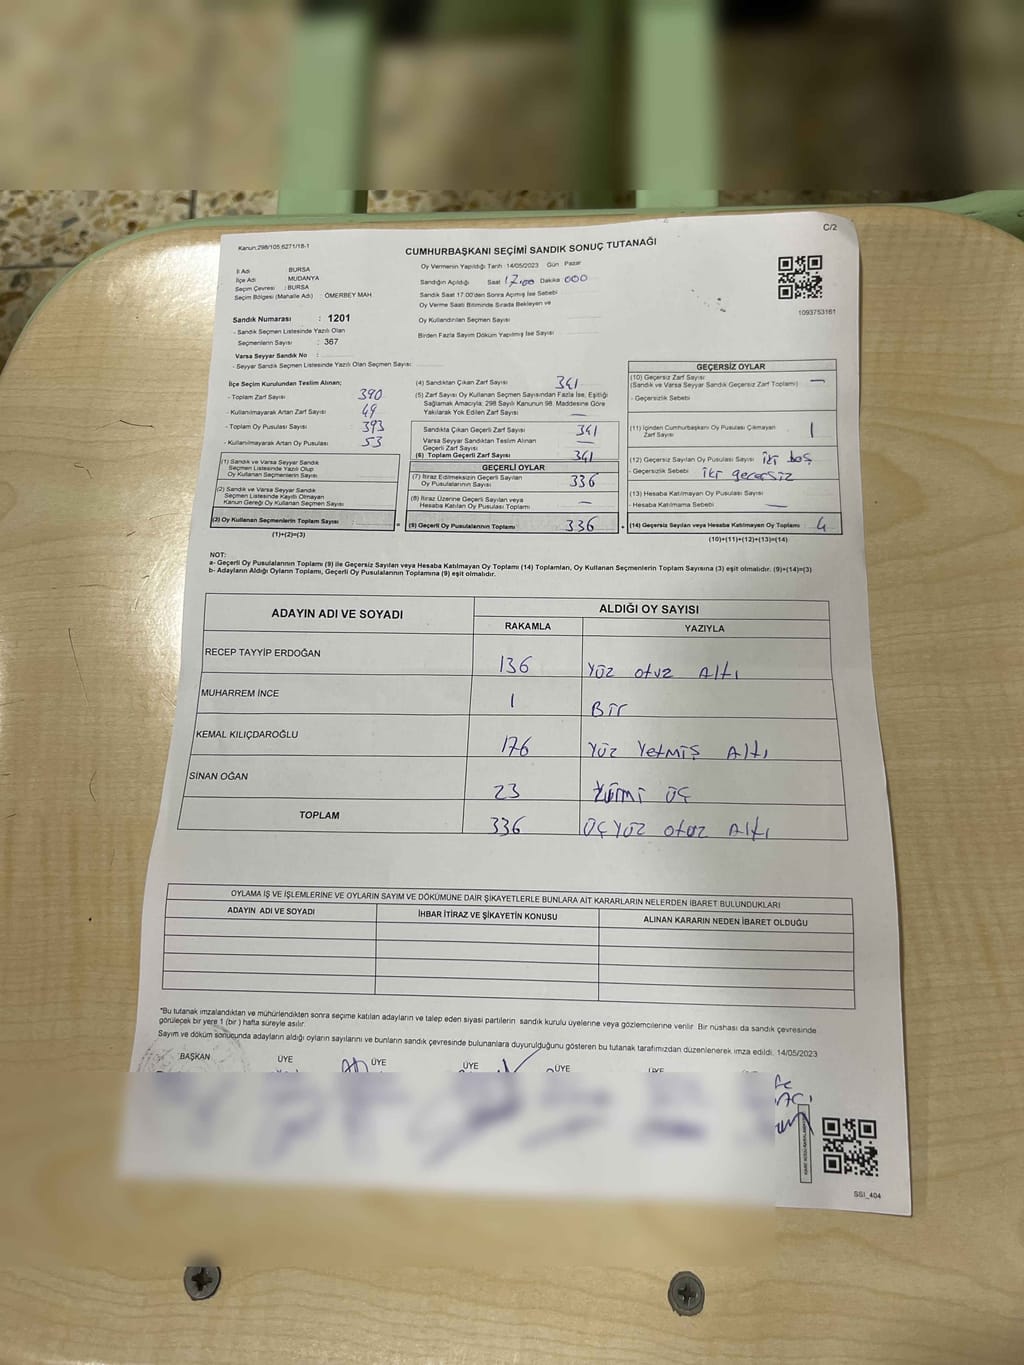 C/2
Kanun;298/105,6271/18-1
CUMHURBAŞKANI SEÇİMİ SANDIK SONUÇ TUTANAĞI
İl Adı : BURSA
İlçe Adı : MUDANYA
Seçim Çevresi : BURSA
Seçim Bölgesi (Mahalle Adı) : ÖMERBEY MAH
Sandık Numarası : 1201
- Sandık Seçmen Listesinde Yazılı Olan
Seçmenlerin Sayısı : 367
Varsa Seyyar Sandık No :
- Seyyar Sandık Seçmen Listesinde Yazılı Olan Seçmen Sayısı:
Oy Vermenin Yapıldığı Tarih 14/05/2023 Gün Pazar
Sandığın Açıldığı Saat 17.00 Dakika 000
Sandık Saat 17.00'den Sonra Açılmış İse Sebebi
Oy Verme Saati Bitiminde Sırada Bekleyen ve
Oy Kullandırılan Seçmen Sayısı
Birden Fazla Sayım Döküm Yapılmış İse Sayısı
1093753161
İlçe Seçim Kurulundan Teslim Alınan;
- Toplam Zarf Sayısı 390
- Kullanılmayarak Artan Zarf Sayısı 49
- Toplam Oy Pusulası Sayısı 393
- Kullanılmayarak Artan Oy Pusulası 53
(1) Sandık ve Varsa Seyyar Sandık
Seçmen Listesinde Yazılı Olup
Oy Kullanan Seçmenlerin Sayısı
(2) Sandık ve Varsa Seyyar Sandık
Seçmen Listesinde Kayıtlı Olmayan
Kanun Gereği Oy Kullanan Seçmen Sayısı
(3) Oy Kullanan Seçmenlerin Toplam Sayısı =
(1)+(2)=(3)
(4) Sandıktan Çıkan Zarf Sayısı 341
(5) Zarf Sayısı Oy Kullanan Seçmen Sayısından Fazla İse, Eşitliği
Sağlamak Amacıyla, 298 Sayılı Kanunun 98. Maddesine Göre
Yakılarak Yok Edilen Zarf Sayısı —
Sandıkta Çıkan Geçerli Zarf Sayısı 341
Varsa Seyyar Sandıktan Teslim Alınan
Geçerli Zarf Sayısı —
(6) Toplam Geçerli Zarf Sayısı 341
GEÇERLİ OYLAR
(7) İtiraz Edilmeksizin Geçerli Sayılan
Oy Pusulalarının Sayısı 336
(8) İtiraz Üzerine Geçerli Sayılan veya
Hesaba Katılan Oy Pusulası Toplamı —
(9) Geçerli Oy Pusulalarının Toplamı 336 +
GEÇERSİZ OYLAR
(10) Geçersiz Zarf Sayısı
(Sandık ve Varsa Seyyar Sandık Geçersiz Zarf Toplamı) —
- Geçersizlik Sebebi
(11) İçinden Cumhurbaşkanı Oy Pusulası Çıkmayan
Zarf Sayısı 1
(12) Geçersiz Sayılan Oy Pusulası Sayısı iki boş
- Geçersizlik Sebebi iki geçersiz
(13) Hesaba Katılmayan Oy Pusulası Sayısı
- Hesaba Katılmama Sebebi —
(14) Geçersiz Sayılan veya Hesaba Katılmayan Oy Toplamı 4
(10)+(11)+(12)+(13)=(14)
NOT:
a- Geçerli Oy Pusulalarının Toplamı (9) ile Geçersiz Sayılan veya Hesaba Katılmayan Oy Toplamı (14) Toplamları, Oy Kullanan Seçmenlerin Toplam Sayısına (3) eşit olmalıdır. (9)+(14)=(3)
b- Adayların Aldığı Oyların Toplamı, Geçerli Oy Pusulalarının Toplamına (9) eşit olmalıdır.
ADAYIN ADI VE SOYADI ALDIĞI OY SAYISI
RAKAMLA YAZIYLA
RECEP TAYYİP ERDOĞAN 136 Yüz otuz Altı
MUHARREM İNCE 1 Bir
KEMAL KILIÇDAROĞLU 176 Yüz Yetmiş Altı
SİNAN OĞAN 23 Yirmi üç
TOPLAM 336 üç yüz otuz Altı
OYLAMA İŞ VE İŞLEMLERİNE VE OYLARIN SAYIM VE DÖKÜMÜNE DAİR ŞİKAYETLERLE BUNLARA AİT KARARLARIN NELERDEN İBARET BULUNDUKLARI
ADAYIN ADI VE SOYADI İHBAR İTİRAZ VE ŞİKAYETİN KONUSU ALINAN KARARIN NEDEN İBARET OLDUĞU
"Bu tutanak imzalandıktan ve mühürlendikten sonra seçime katılan adayların ve talep eden siyasi partilerin sandık kurulu üyelerine veya gözlemcilerine verilir. Bir nüshası da sandık çevresinde
görülecek bir yere 1 (bir ) hafta süreyle asılır.
Sayım ve döküm sonucunda adayların aldığı oyların sayılarını ve bunların sandık çevresinde bulunanlara duyurulduğunu gösteren bu tutanak tarafımızdan düzenlenerek imza edildi. 14/05/2023
BAŞKAN ÜYE ÜYE ÜYE ÜYE ÜYE
SSI_404